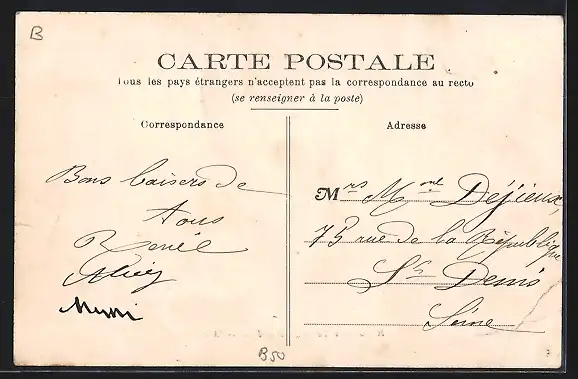 B
CARTE POSTALE
Tous les pays étrangers n'acceptent pas la correspondance au recto
(se renseigner à la poste)
Correspondance
Bons baisers de
tous
Renée
Adresse
Mrs
73 rue de la République
St Denis
Seine
B50